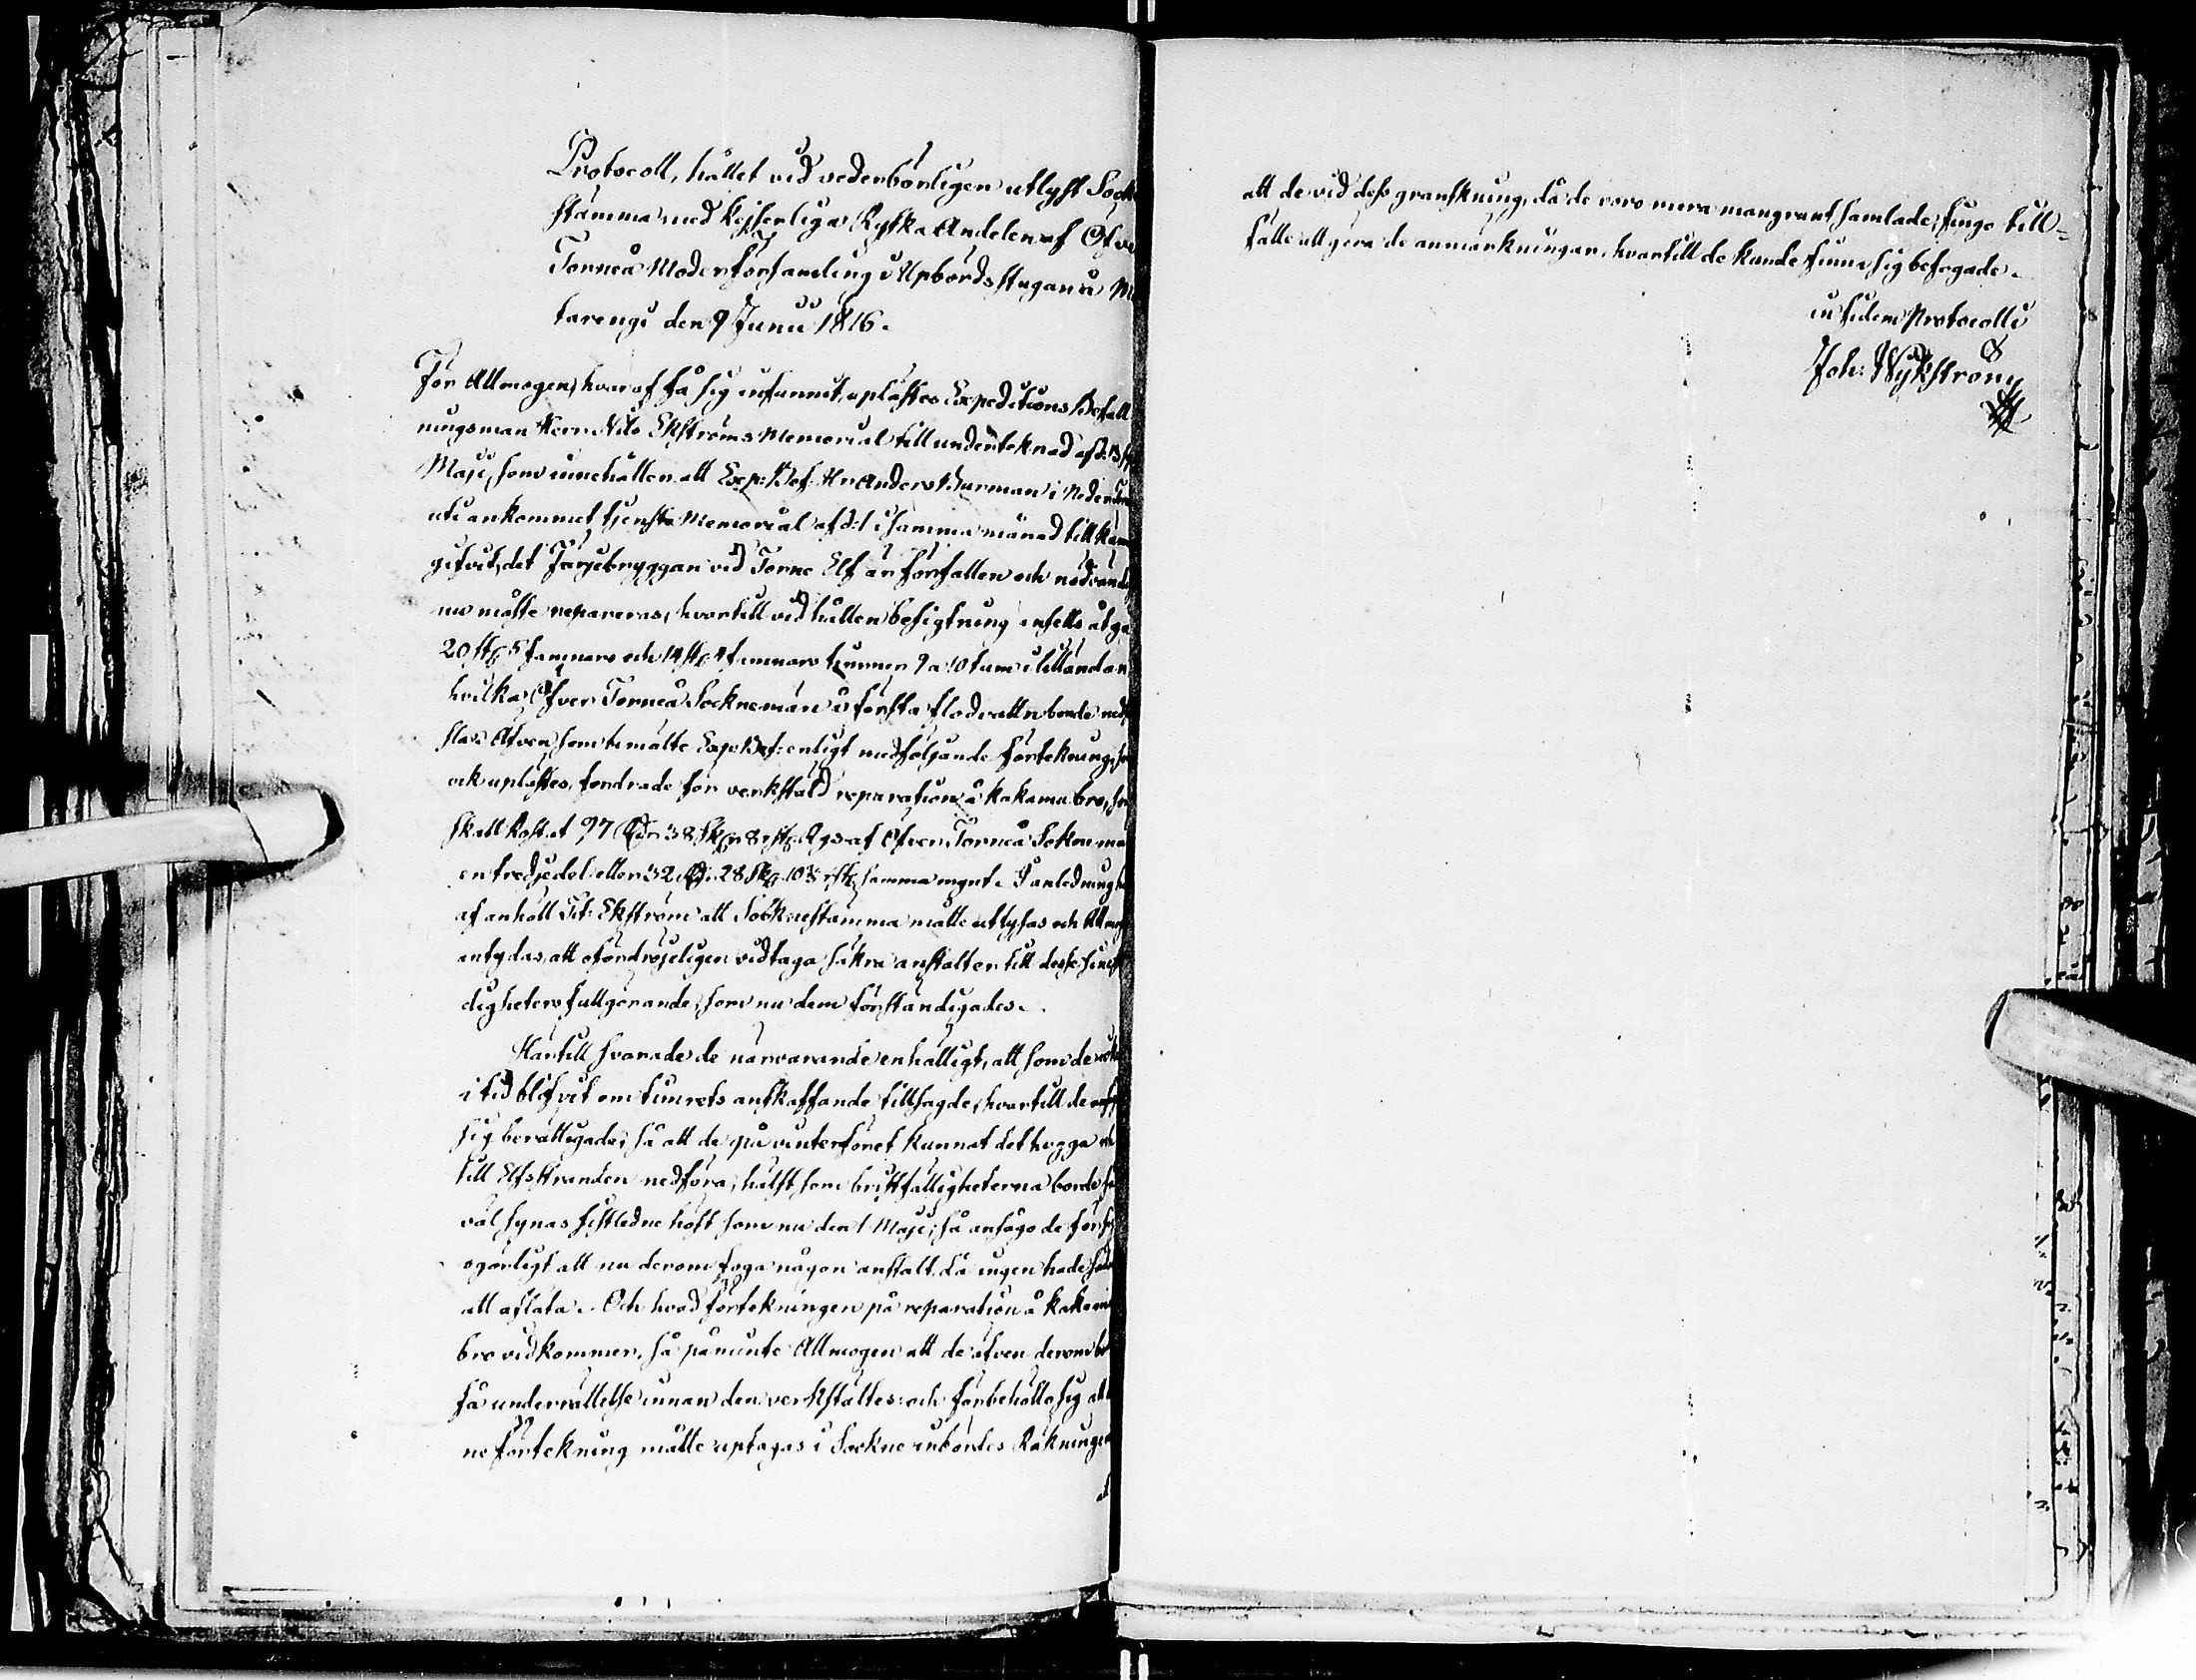 Protocoll, hållet vid vederbörligen utlyst Sock
stämma med Kejserliga Ryska Andelen af Öfve
Torneå Moderförsamling i Upbördsstugan å M
tarengi den 9 Junii 1816.
För Allmogen, hvaraf få sig infunnit, uplästes Expeditions Befall
ningsman Herr Nils Ekströms Memorial till underteknad af d: 13
Maji, som innehåller att Exp: Bef: Hr Anders Burman i Neder
uti ankommet tjenste Memorial af d: 1 i samma månad tillkänna
gifvit, det Färjebryggan vid Torne Elf är förfallen och nödvänd
nu måste repareras, hvartill vid hållen besigtning ansetts åtgå
20 st: 5 famnars och 14 st: 4 famnars timmer 9 a 10 tum i lilländan
hvilka Öfver Torneå Sockneman å första flodvattn borde ned
flås. Äfven som bemälte Exp: Bef: enligt medföljande förtekning, som
ock uplästes, fordrade för verkstäld reparation å Kakama bro, som
skall kostat 97 Rdr 38 sk: 8 rst: Rgs af Öfver Torneå Sokne män
en tredjedel eller 32 Rd: 28 sk: 10 2/3 rst: samma mynt. I anledning här
af anhöll Tit: Ekström att Sockenstämma måtte utlysas och Allmog
antydas, att ofördröjeligen vidtaga säkra anstalter till desse
digheters fullgörande, som nu dem förständigades.
Härtill svarade de närvarande enhälligt, att som de icke
i tid blifvit om timrets anskaffande tillsagde, hvartill de anse
sig berättigade, så att de på vinterföret kunnat det hugga och
till Elfstranden nedföra, hälst som bristfälligheterna borde så
väl synas sistledne höst som nu den 1 Maji; så ansågo de för sig
ogörligt att nu derom foga någon anstalt, då ingen hade
att aflåta. Och hvad förtekningen på reparation å Kakama
bro vidkommer, så påminte Allmogen att de äfven derom bordt
få underrättelse innan den verkstältes: och förbehöllo sig att
ne förtekning måtte uptagas i Sockne inbördes Räkningen
att
att de vid dess granskning, då de voro mera mangrant samlade, fingo till-
fälle att göra de anmärkningar, hvartill de kunde finna sig befogade.
in fidem Protocolli
Joh: Wykström